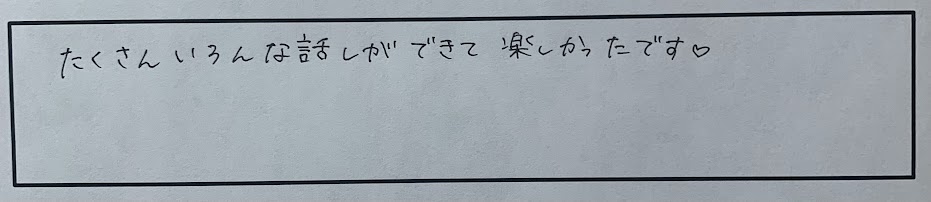 たくさんいろんな話しができて楽しかったです♡